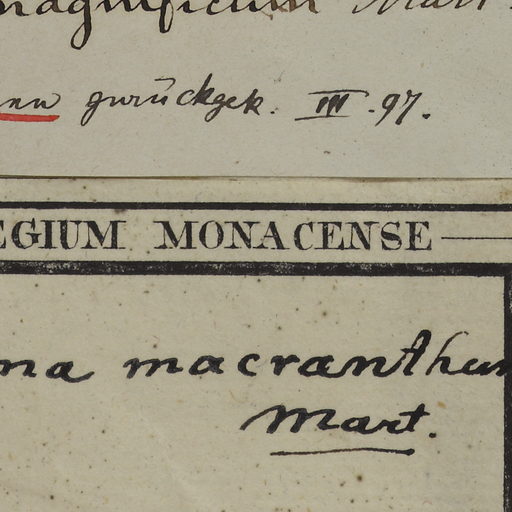 magnificum Mart
nn zurückgek. III. 97.
EGIUM MONACENSE
ma macranthum
Mart.